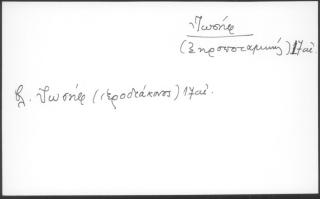 Ἰωσήφ
(Ξηροποταμινός) 17 αἰ.
βλ. Ἰωσήφ (ἱεροδιάκονος) 17 αἰ.